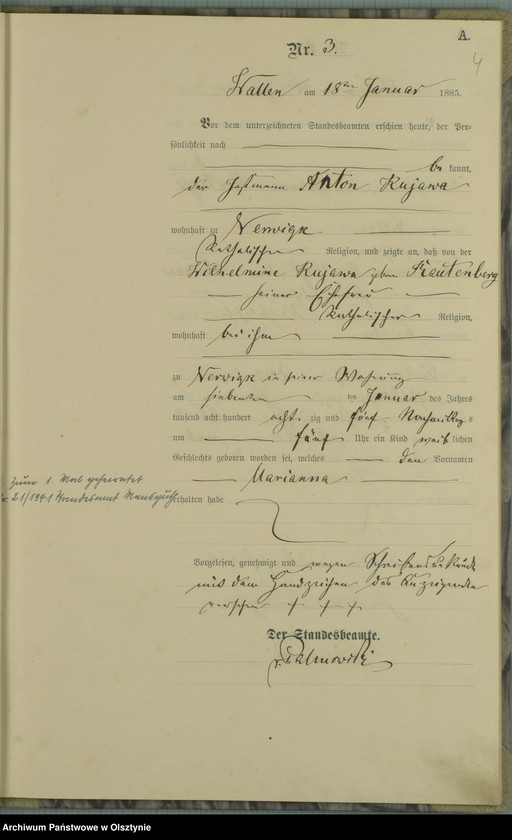 A.
4
Nr. 3.
Wallen am 18ten Januar 1885.
Vor dem unterzeichneten Standesbeamten erschien heute, der Per-
sönlichkeit nach
be kannt,
der Anton Kujawa
wohnhaft zu Nerwigk
katholischer Religion, und zeigte an, daß von der
Wilhelmine Kujawa geborn Trautenberg
seiner Ehefrau
katholischer Religion,
wohnhaft bei ihm
zu Nerwigk in seiner Wohnung
am siebenten Januar des Jahres
tausend acht hundert acht zig und fünf Nachmittags
um fünf Uhr ein Kind weib lichen
Geschlechts geboren worden sei, welches den Vornamen
Marianna
Zum 1. Mal geheiratet
21/1941 Standesamt
erhalten habe
Vorgelesen, genehmigt und wegen Schreibensunkunde
mit dem Handzeichen des Anzeigenden
versehen + + +
Der Standesbeamte.
v. Palmowski
Archiwum Państwowe w Olsztynie